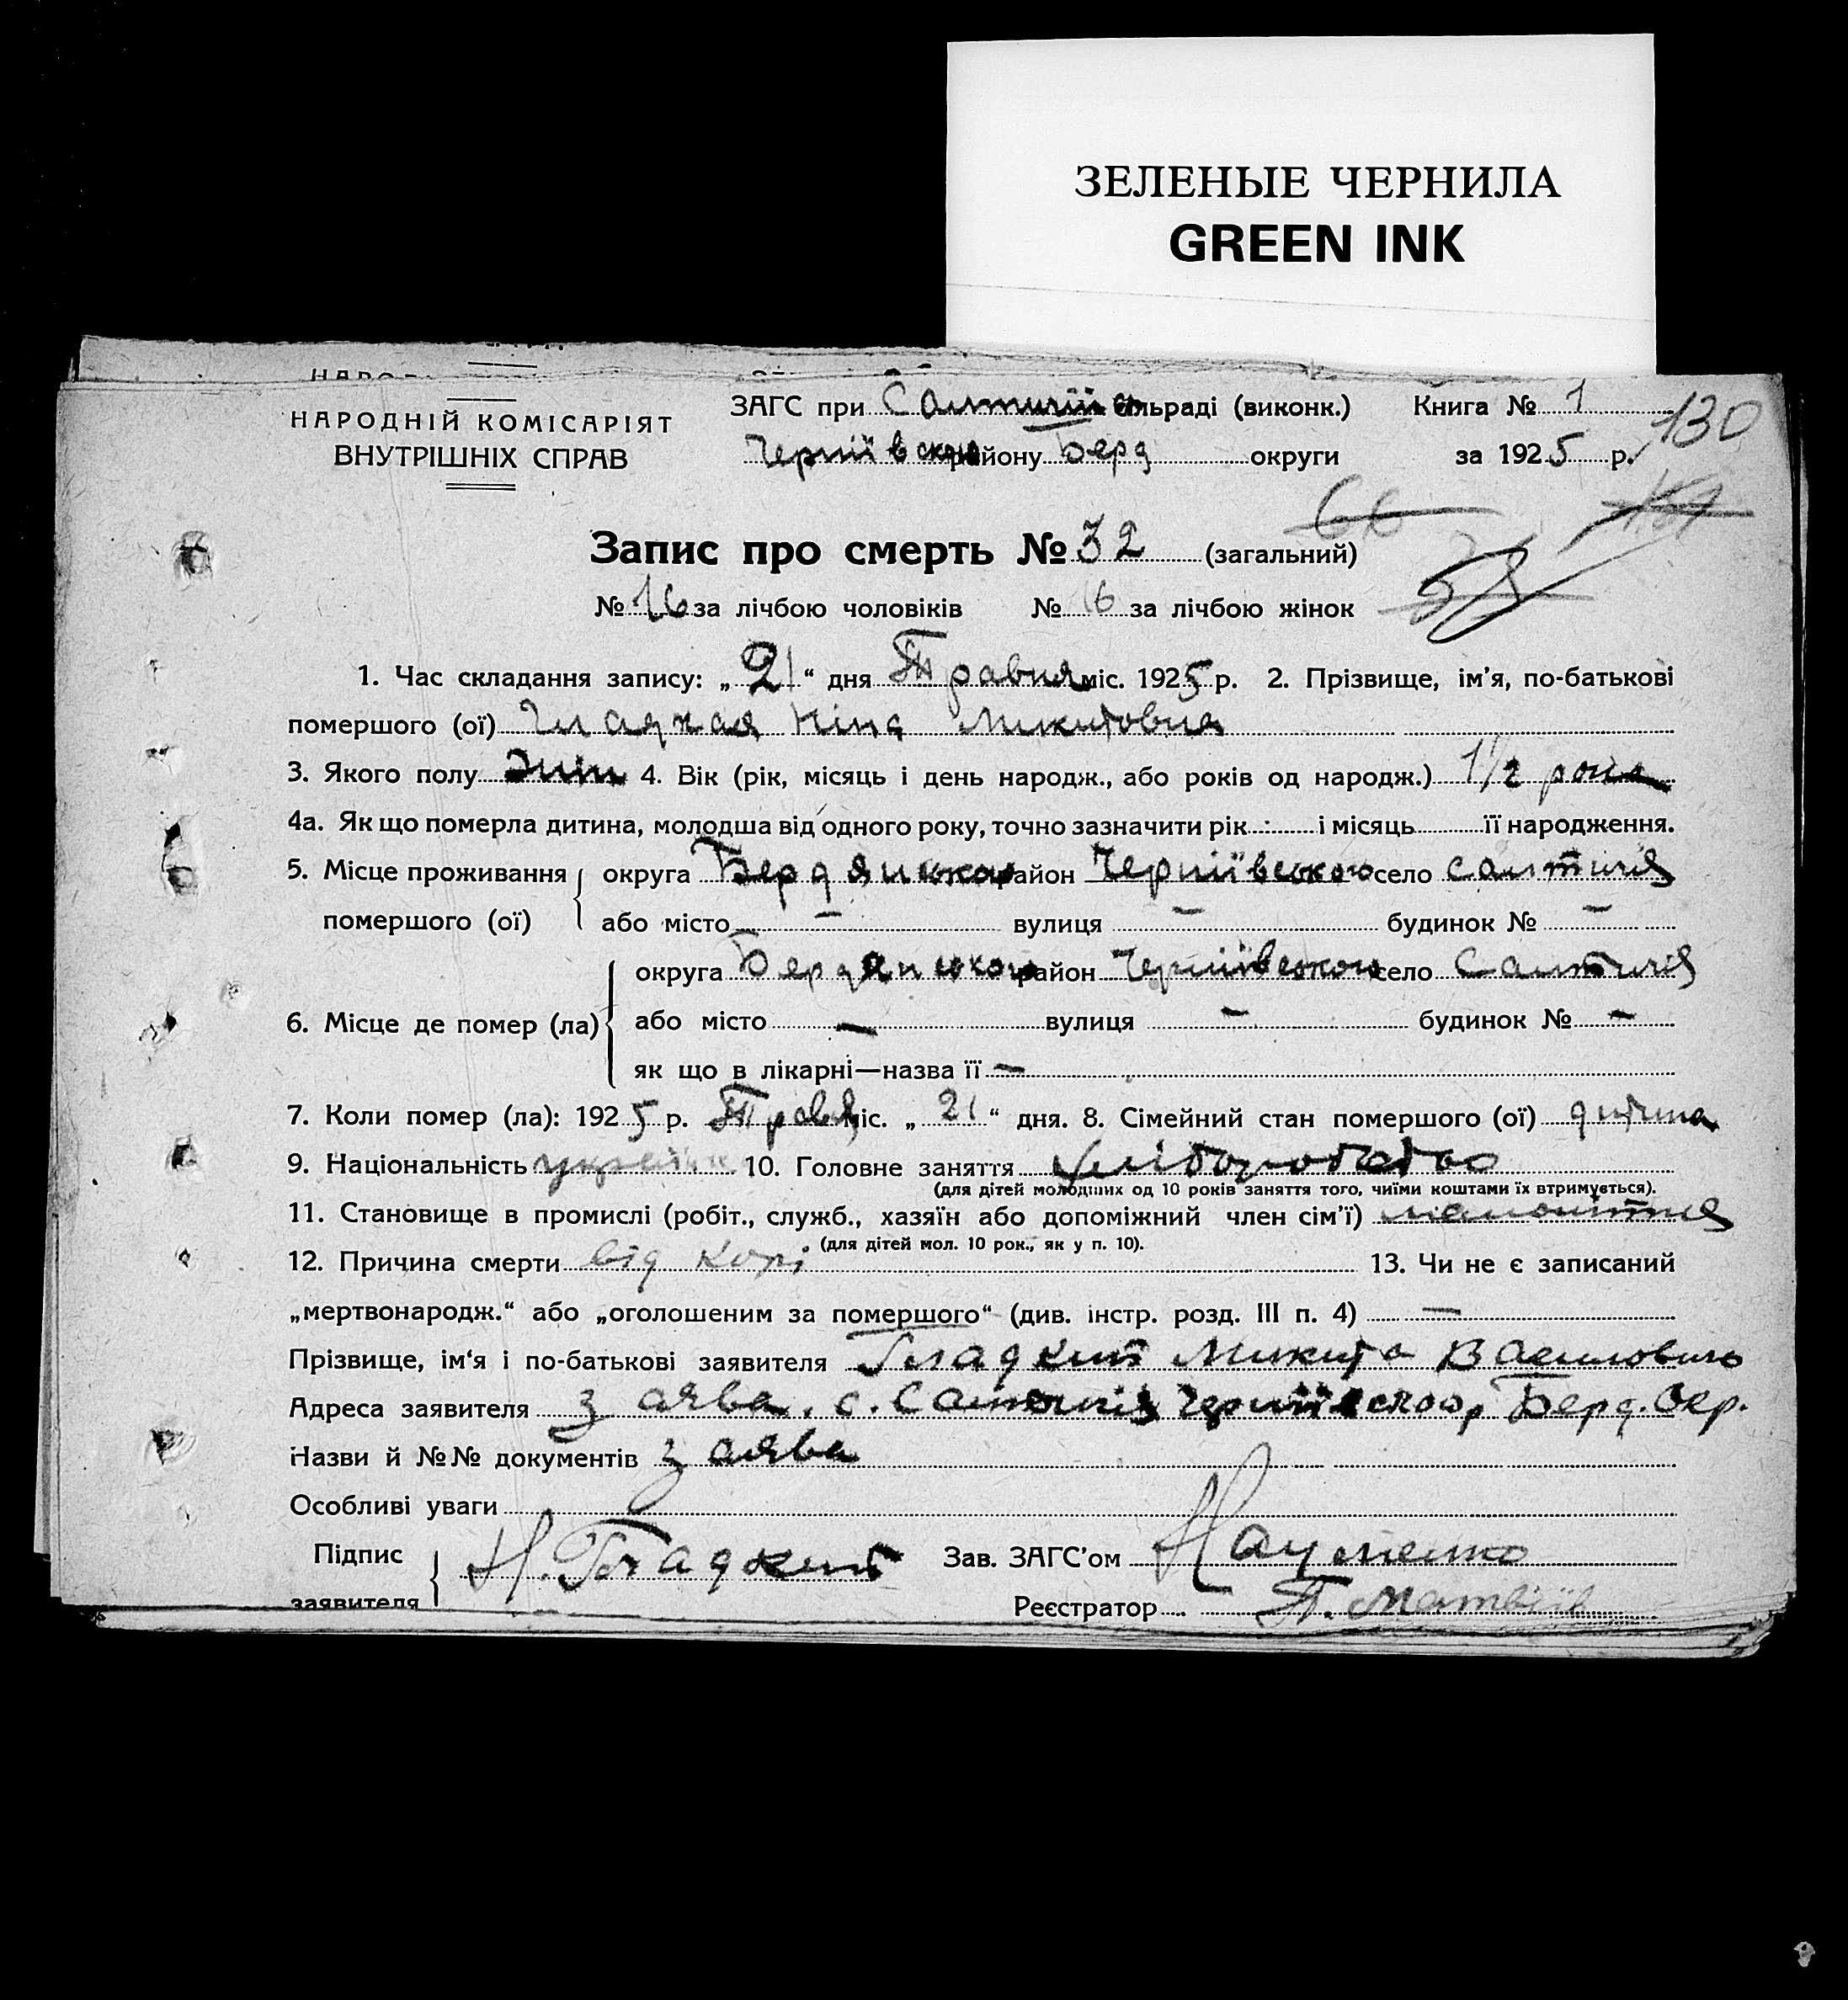 ЗЕЛЕНЫЕ ЧЕРНИЛА
GREEN INK
НАРОДНІЙ КОМІСАРІЯТ
ВНУТРІШНІХ СПРАВ
ЗАГС при Салтичїй сільраді (виконк.) Книга № 1
130
Чернїївсько району Берд округи за 1925 р.
66
Запис про смерть № 32 (загальний)
№ 16 за лічбою чоловіків № 16 за лічбою жінок
1. Час складання запису: „21“ дня Травня міс. 1925 р. 2. Прізвище, ім'я, по-батькові
помершого (ої) Гладкая Ніна Микитовна
3. Якого полу жін 4. Вік (рік, місяць і день народж., або років од народж.) 1 1/2 рока
4а. Як що померла дитина, молодша від одного року, точно зазначити рік і місяць її народження.
5. Місце проживання округа Бердянської район Чернїївського село Салтичія
помершого (ої) або місто — вулиця — будинок № —
округа Бердянської район Чернїївського село Салтичія
6. Місце де помер (ла) або місто — вулиця — будинок № —
як що в лікарні—назва її —
7. Коли помер (ла): 1925 р. Травня міс. „21“ дня. 8. Сімейний стан помершого (ої) дитина
9. Національність україн 10. Головне заняття хліборобство
(для дітей молодших од 10 років заняття того, чиїми коштами їх втримується).
11. Становище в промислі (робіт., служб., хазяїн або допоміжний член сім'ї)
(для дітей мол. 10 рок., як у п. 10).
12. Причина смерти від корі 13. Чи не є записаний
„мертвонародж.“ або „оголошеним за помершого“ (див. інстр. розд. III п. 4) —
Прізвище, ім'я і по-батькові заявителя Гладкий Микита Васильович
Адреса заявителя заява. с. Салтичія Чернїївського р Берд. Окр.
Назви й №№ документів заява
Особливі уваги
Підпис
заявителя Н. Гладкий Зав. ЗАГС'ом Науменко
Реєстратор П. Матвіїв